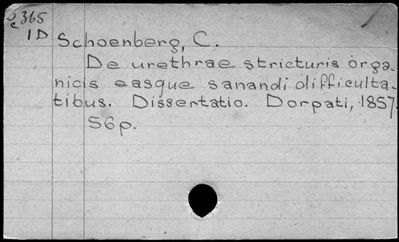 2c365
1D
Schoenberg, C.
De urethrae stricturis orga-
nicis easque sanandi difficulta-
tibus. Dissertatio. Dorpati, 1857.
56p.